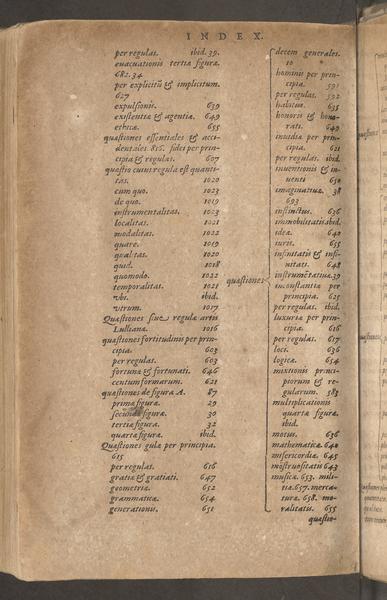 INDEX.
per regulas. ibid. 39.
euacuationis tertiæ figuræ.
682. 34
per explicitũ & implicitum.
627
expulsionis. 639
existentiæ & agentiæ. 649
ethicæ. 655
quæstiones essentiales & acci-
dentales 816. fidei per prin-
cipia & regulas. 607
quæstio cuius regula est quanti-
tas. 1020
cum quo. 1023
de quo. 1019
instrumentalitas. 1023
localitas. 1021
modalitas. 1022
quare. 1019
qualitas. 1020
quid. 1018
quomodo. 1022
temporalitas. 1021
vbi. ibid.
vtrum. 1017
Quæstiones siue regulæ artis
Lullianæ. 1016
quæstiones fortitudinis per prin-
cipia. 603
per regulas. 603
fortunæ & fortunati. 646
centum formarum. 621
quæstiones de figura A. 87
prima figuræ. 29
secundæ figuræ. 30
tertiæ figuræ. 32
quartæ figuræ. ibid.
Quæstiones gulæ per principia.
615
per regulas. 616
gratiæ & gratiati. 647
geometriæ. 652
grammaticæ. 654
generationis. 651
quæstiones
decem generales.
10
hominis per prin-
cipia. 591
per regulas. 592
habitus. 635
honoris & hono-
rati. 649
inuidiæ per prin-
cipia. 621
per regulas. ibid.
inuentionis & in-
uenti 650
imaginatiuæ. 38
693
instinctus. 636
immobilitatis ibid.
ideæ. 640
iuris. 655
infinitatis & infi-
nitati. 648
instrumẽtatiuæ. 39
inconstantiæ per
principia. 625
per regulas. ibid.
luxuriæ per prin-
cipia. 616
per regulas. 617
loci. 636
logicæ. 654
mixtionis princi-
piorum & re-
gularum. 583
multiplicationis
quartæ figuræ.
ibid.
motus. 636
mathematicæ. 640
misericordiæ. 645
mõstruositatis 643
musicæ. 653. mili-
tiæ. 657. merca-
turæ. 658. mo-
ralitatis. 655
quæstio-